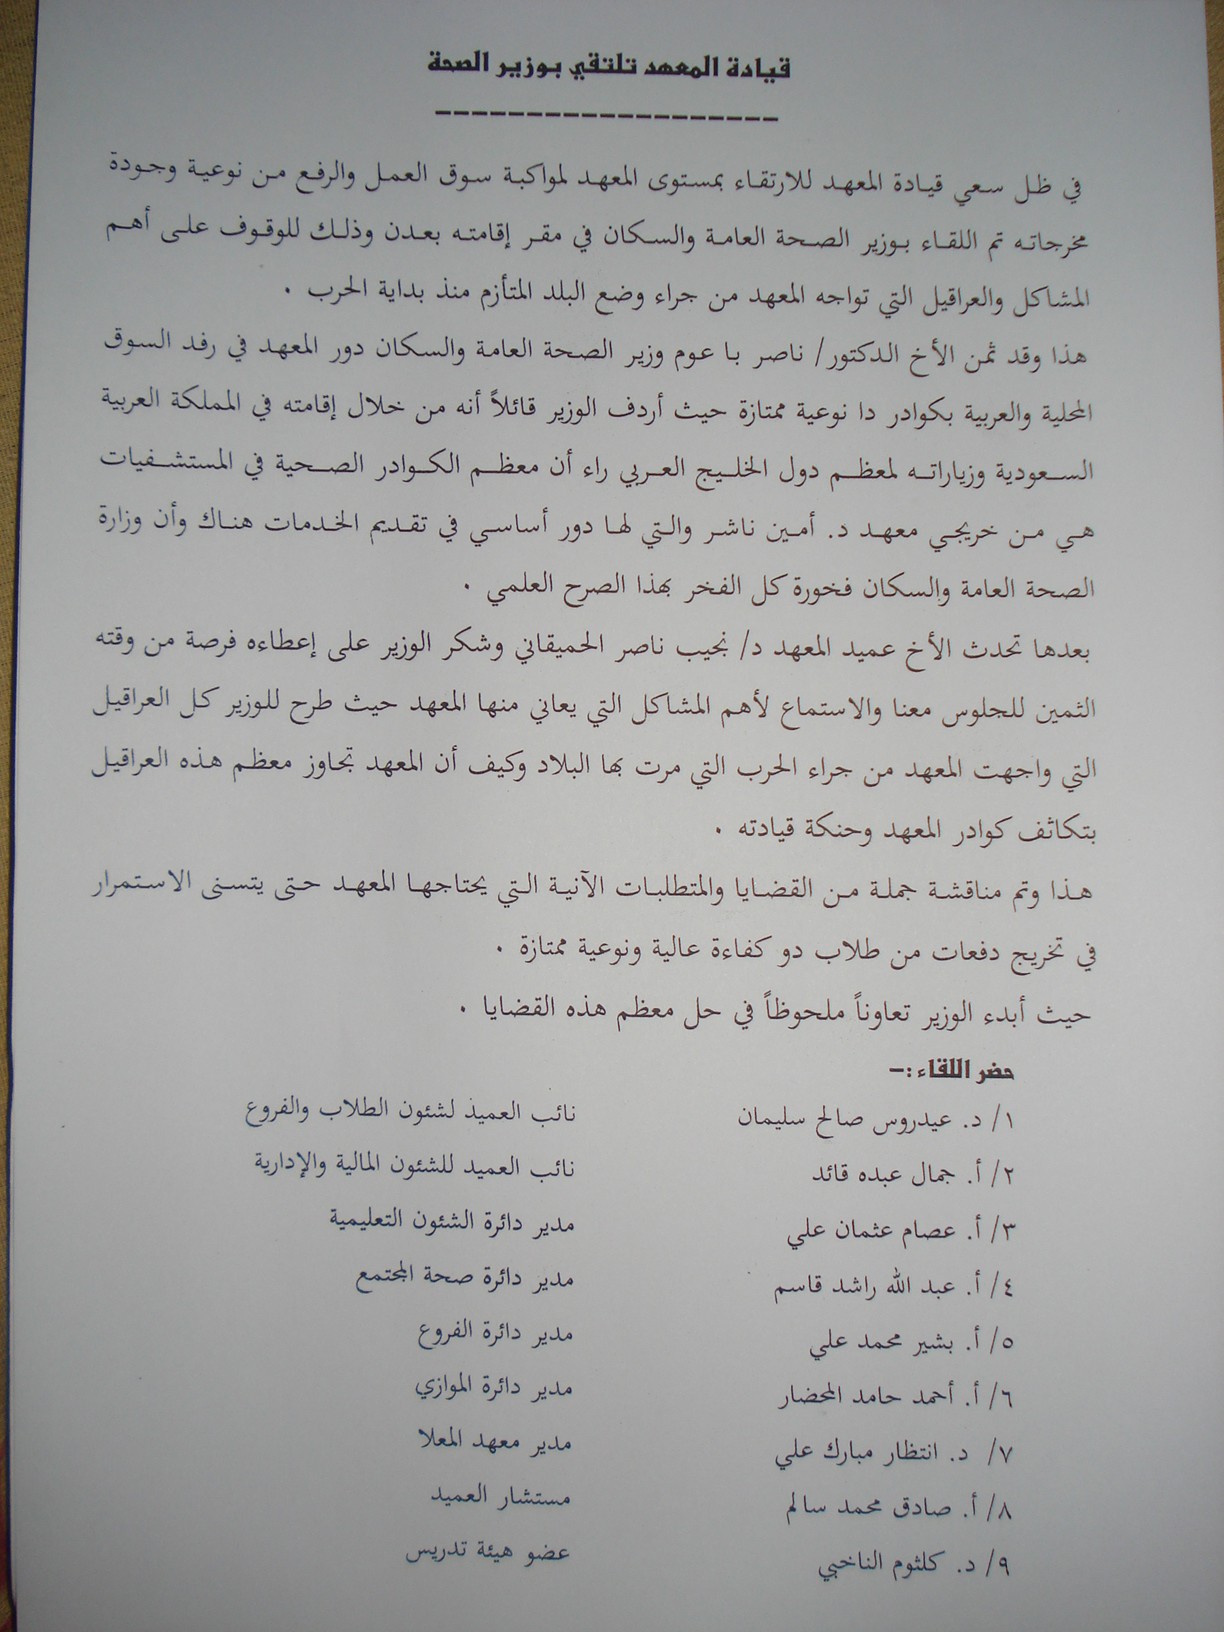 قيادة المعهد تلتقي بوزير الصحة
في ظل سعي قيادة المعهد للارتقاء بمستوى المعهد لمواكبة سوق العمل والرفع من نوعية وجودة
مخرجاته تم اللقاء بوزير الصحة العامة والسكان في مقر إقامته بعدن وذلك للوقوف على أهم
المشاكل والعراقيل التي تواجه المعهد من جراء وضع البلد المتأزم منذ بداية الحرب .
هذا وقد ثمن الأخ الدكتور/ ناصر با عوم وزير الصحة العامة والسكان دور المعهد في رفد السوق
المحلية والعربية بكوادر دا نوعية ممتازة حيث أردف الوزير قائلاً أنه من خلال إقامته في المملكة العربية
السعودية وزياراته لمعظم دول الخليج العربي راء أن معظم الكوادر الصحية في المستشفيات
هي من خريجي معهد د. أمين ناشر والتي لها دور أساسي في تقديم الخدمات هناك وأن وزارة
الصحة العامة والسكان فخورة كل الفخر بهذا الصرح العلمي .
بعدها تحدث الأخ عميد المعهد د/ نجيب ناصر الحميقاني وشكر الوزير على إعطاءه فرصة من وقته
الثمين للجلوس معنا والاستماع لأهم المشاكل التي يعاني منها المعهد حيث طرح للوزير كل العراقيل
التي واجهت المعهد من جراء الحرب التي مرت بها البلاد وكيف أن المعهد تجاوز معظم هذه العراقيل
بتكاثف كوادر المعهد وحنكة قيادته .
هذا وتم مناقشة جملة من القضايا والمتطلبات الآنية التي يحتاجها المعهد حتى يتسنى الاستمرار
في تخريج دفعات من طلاب دو كفاءة عالية ونوعية ممتازة .
حيث أبدء الوزير تعاوناً ملحوظاً في حل معظم هذه القضايا .
حضر اللقاء :-
١/ د. عيدروس صالح سليمان نائب العميذ لشئون الطلاب والفروع
٢/ أ. جمال عبده قائد نائب العميد للشئون المالية والإدارية
٣/ أ. عصام عثمان علي مدير دائرة الشئون التعليمية
٤/ أ. عبد الله راشد قاسم مدير دائرة صحة المجتمع
٥/ أ. بشير محمد علي مدير دائرة الفروع
٦/ أ. أحمد حامد المحضار مدير دائرة الموازي
٧/ د. انتظار مبارك علي مدير معهد المعلا
٨/ أ. صادق محمد سالم مستشار العميد
٩/ د. كلثوم الناخبي عضو هيئة تدريس